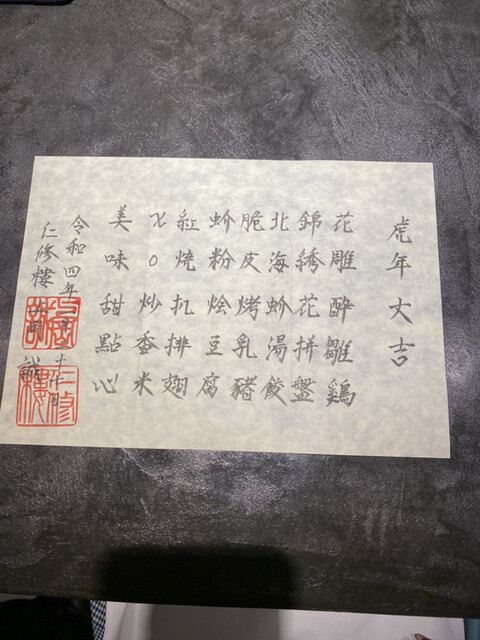 虎年大吉
花雕醉雛鷄
錦綉花拼盤
北海蚧湯餃
脆皮烤乳豬
蚧粉烩豆腐
紅燒扒排翅
XO炒香米
美味甜點心
令和四年
仁修樓